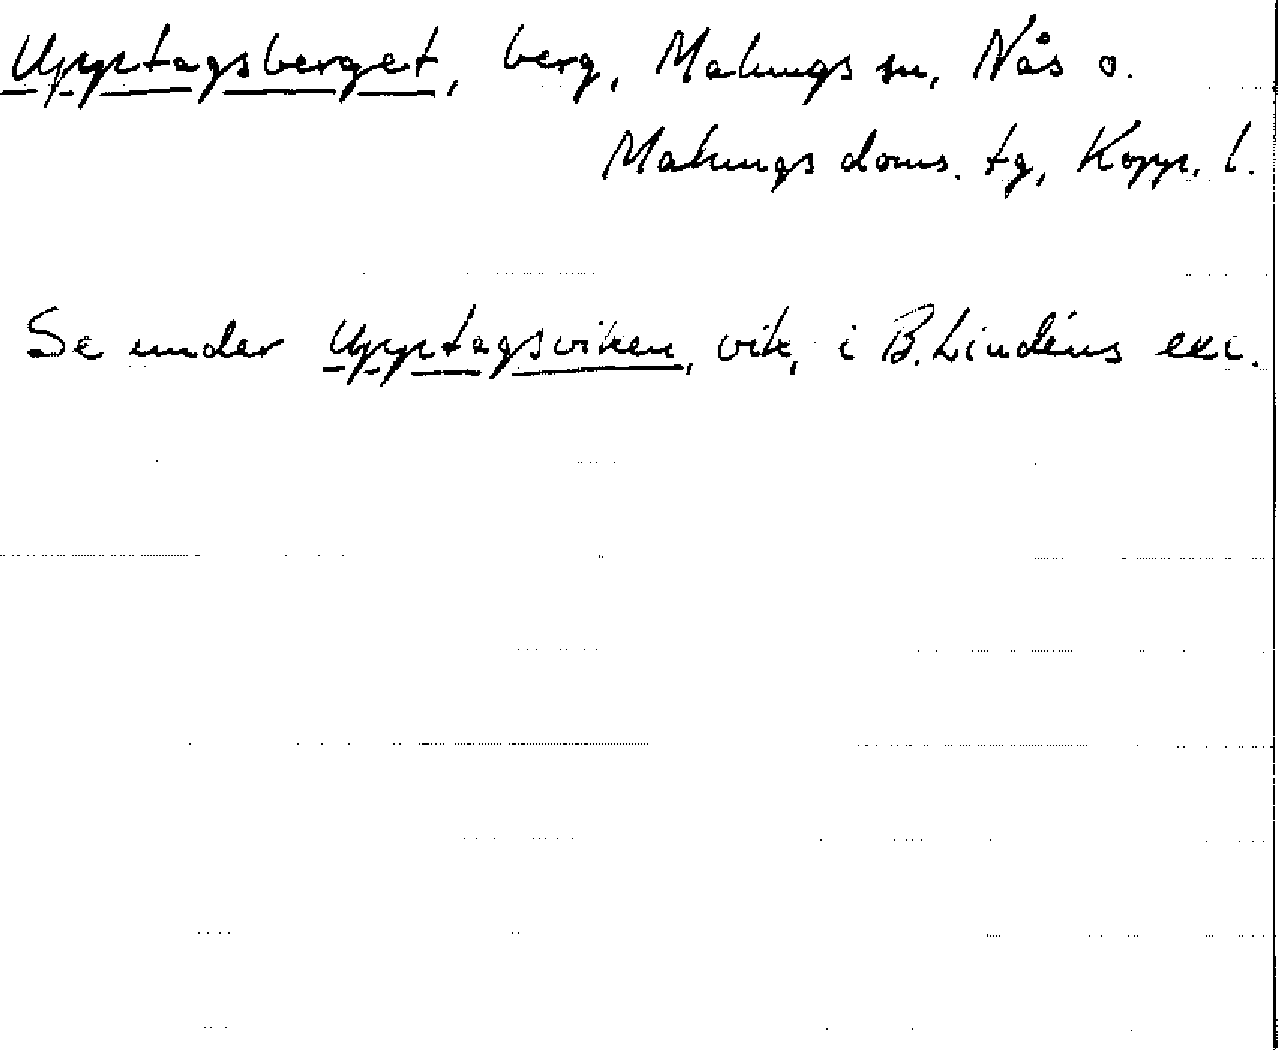 Upptagsberget, berg, Malungs sn, Nås o.
Malungs doms. tg, Kopp. l.
Se under Upptagsviken, vik, i B. Lindéns exc.